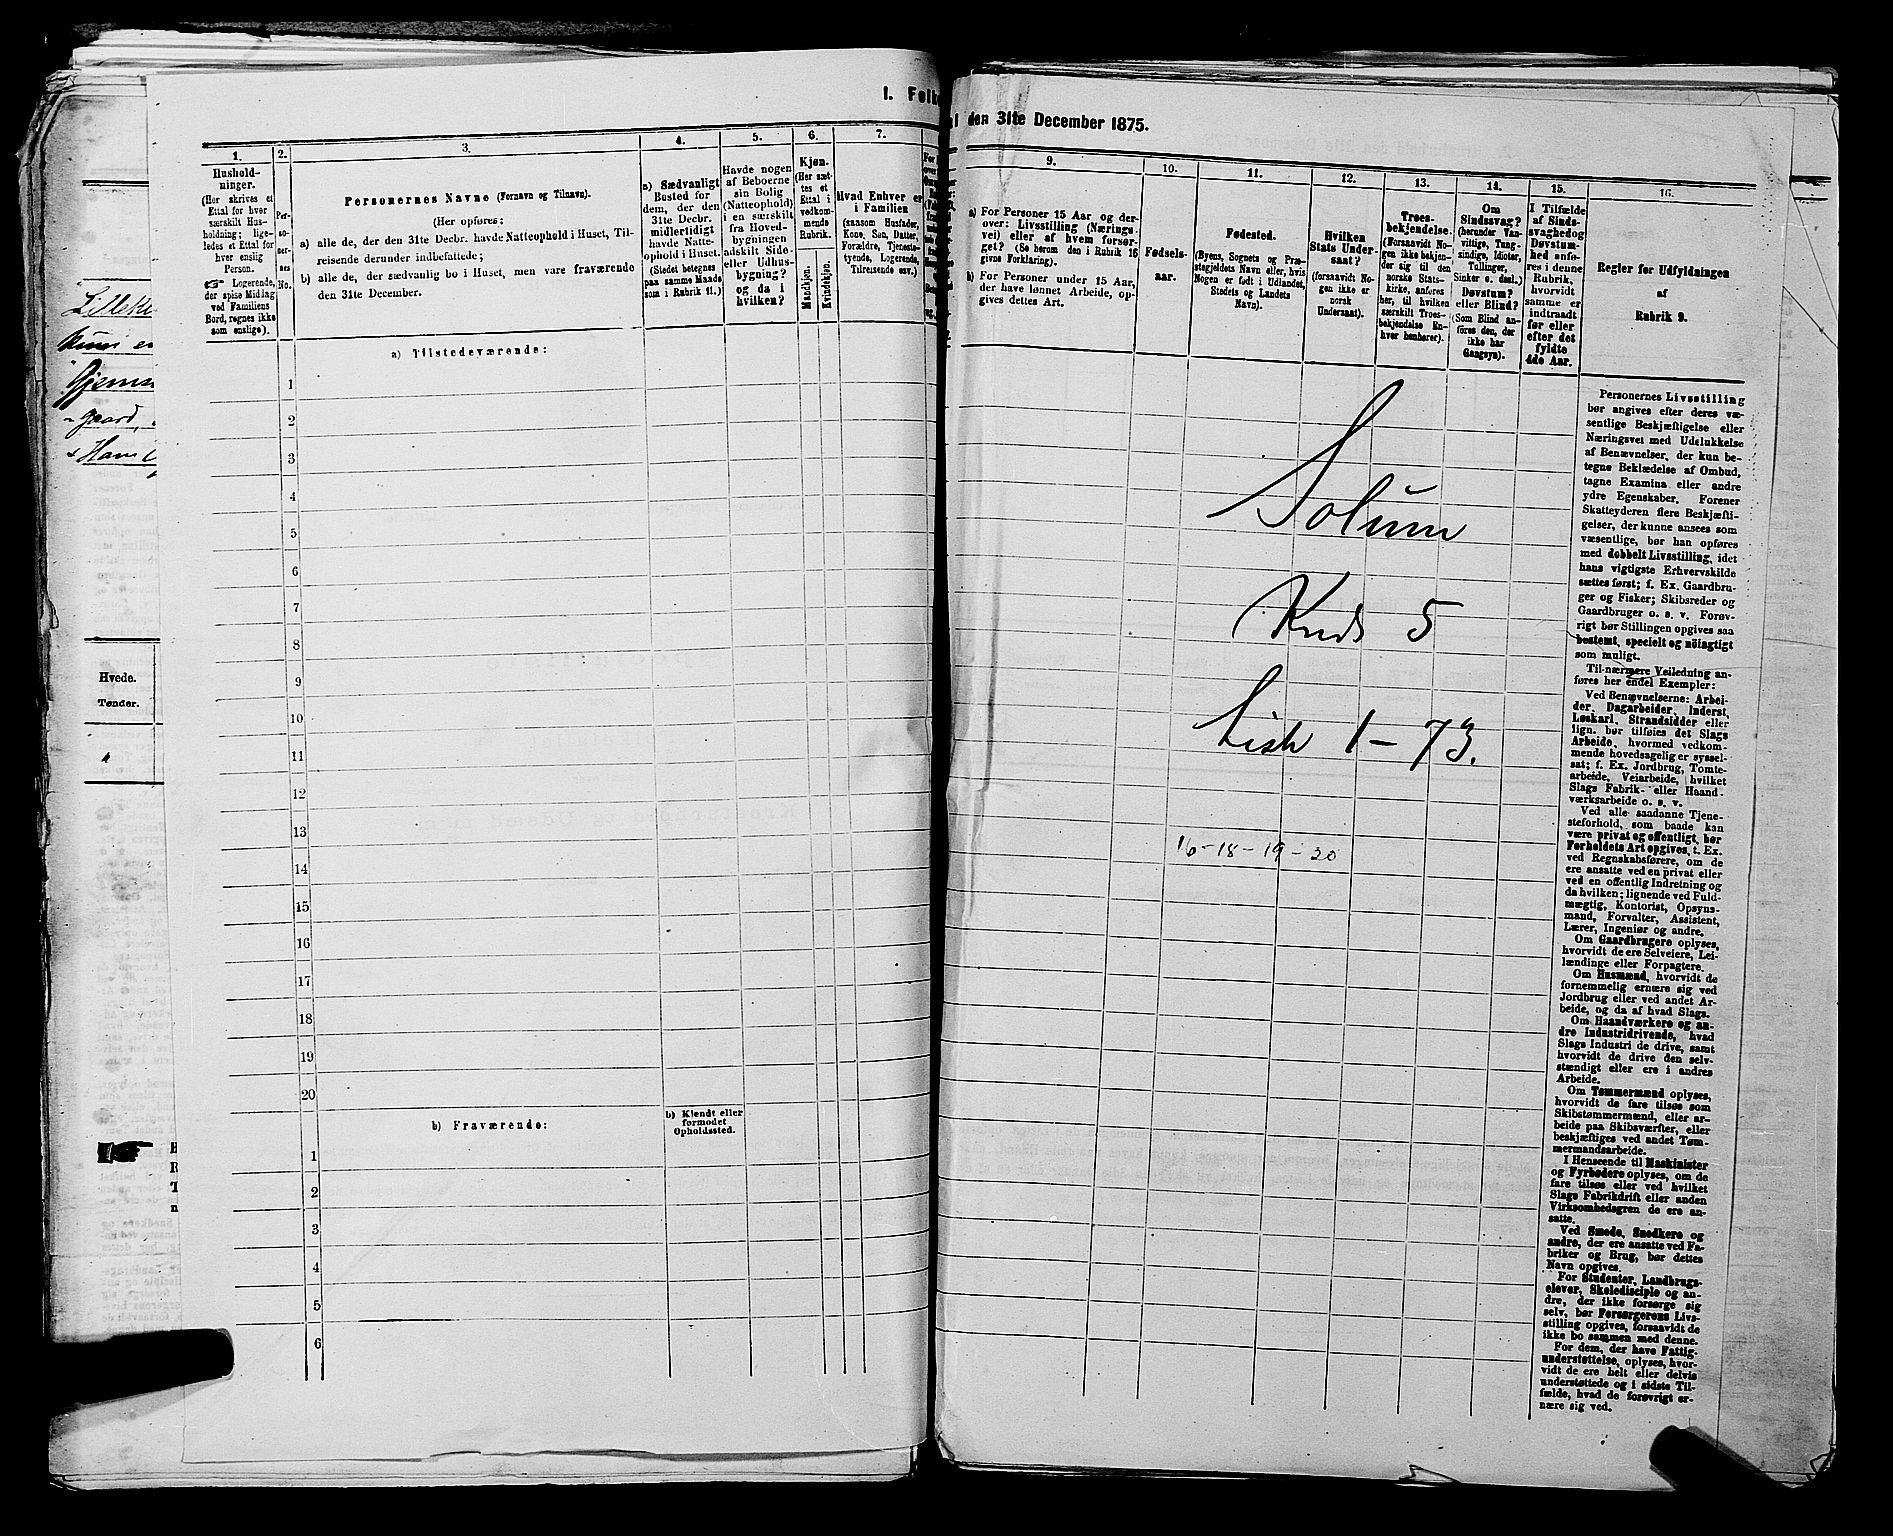 Lilleku
kun en
Gjems
gaard,
Hvede.
Tønder.
"
I. Folk
1.
2.
3.
4.
5.
6.
7.
Hushold-
ninger.
(Her skrives et
Ettal for hver
særskilt Hus-
holdning; lige-
ledes et Ettal for
hver enslig
Person.
☞ Logerende,
der spise Middag
ved Familiens
Bord, regnes ikke
som enslige).
Per-
so-
ner-
nes
No.
Personernes Navne (Fornavn og Tilnavn).
(Her opføres:
a) alle de, der den 31te Decbr. havde Natteophold i Huset, Til-
reisende derunder indbefattede;
b) alle de, der sædvanlig bo i Huset, men vare fraværende
den 31te December.
a) Sædvanligt
Bosted for
dem, der den
31te Decbr.
midlertidigt
havde Natte-
ophold i Huset.
(Stedet betegnes
paa samme Maade
som i Rubrik 11.)
Havde nogen
af Beboerne
sin Bolig
(Natteophold)
i en særskilt
fra Hoved-
bygningen
adskilt Side-
eller Udhus-
bygning?
og da i
hvilken?
Kjøn.
(Her sæt-
tes et
Ettal i
vedkom-
mende
Rubrik.
Mandkjøn.
Kvindekjøn.
Hvad Enhver er
i Familien
(saasom Husfader,
Kone, Søn, Datter,
Forældre, Tjeneste-
tyende, Logerende,
Tilreisende osv.)
a) Tilstedeværende:
1
2
3
4
5
6
7
8
9
10
11
12
13
14
15
16
17
18
19
20
b) Fraværende:
b) Kjendt eller
formodet
Opholdssted.
1
2
3
4
5
6
den 31te December 1875.
9.
10.
11.
12.
13.
14.
15.
16.
a) For Personer 15 Aar og der-
over: Livsstilling (Nærings-
vei) eller af hvem forsør-
get? (Se herom den i Rubrik 16
givne Forklaring).
b) For Personer under 15 Aar,
der have lønnet Arbeide, op-
gives dettes Art.
Fødsels-
aar.
Fødested.
(Byens, Sognets og Præ-
stegjeldets Navn eller, hvis
Nogen er født i Udlandet,
Stedets og Landets
Navn).
Hvilken
Stats Under-
saat?
(forsaavidt No-
gen ikke er
norsk
Undersaat).
Troes-
bekjendelse.
(Forsaavidt No-
gen ikke bekjen-
der sig til den
norske Stats-
kirke, anføres
her, til hvilken
særskilt Troes-
bekjendelse En-
hver henhører).
Om
Sindssvag?
(herunder Van-
vittige, Tung-
sindige, Idioter,
Tullinger,
Sinker o. desl.)
Døvstum?
eller Blind?
(Som Blind an-
føres den, der
ikke har
Gangsyn).
I Tilfælde
af Sinds-
svaghed og
Døvstum-
hed anfø-
res i denne
Rubrik,
hvorvidt
samme er
indtraadt
før eller
efter det
fyldte
4de Aar.
Regler for Udfyldningen
af
Rubrik 9.
Solum
Kreds 5
Liste 1 - 73.
16-18-19-20
Personernes Livsstilling
bør angives efter deres væ-
sentlige Beskjæftigelse eller
Næringsvei med Udelukkelse
af Benævnelser, der kun be-
tegne Beklædelse af Ombud,
tagne Examina eller andre
ydre Egenskaber. Forener
Skatteyderen flere Beskjæfti-
gelser, der kunne ansees som
væsentlige, bør han opføres
med dobbelt Livsstilling, idet
hans vigtigste Erhvervskilde
sættes først; f. Ex. Gaardbru-
ger og Fisker; Skibsreder og
Gaardbruger o. s. v. Forøv-
rigt bør Stillingen opgives saa
bestemt, specielt og nöiagtigt
som muligt.
Til nærmere Veiledning an-
føres her endel Exempler:
Ved Benævnelserne: Arbei-
der, Dagarbeider, Inderst,
Løskarl, Strandsidder eller
lign. bør tilføies det Slags
Arbeide, hvormed vedkom-
mende hovedsagelig er syssel-
sat; f. Ex. Jordbrug, Tomte-
arbeide, Veiarbeide, hvilket
Slags Fabrik- eller Haand-
værksarbeide o. s. v.
Ved alle saadanne Tjene-
steforhold, som baade kan
være privat og offentligt, bør
Forholdets Art opgives, t. Ex.
ved Regnskabsførere, om de
ere ansatte ved en privat eller
ved en offentlig Indretning og
da hvilken; lignende ved Fuld-
mægtig, Kontorist, Opsyns-
mand, Forvalter, Assistent,
Lærer, Ingeniør og andre.
Om Gaardbrugere oplyses,
hvorvidt de ere Selveiere, Lei-
lændinge eller Forpagtere.
Om Husmænd, hvorvidt de
fornemmelig ernære sig ved
Jordbrug eller ved andet Ar-
beide, og da af hvad Slags.
Om Haandværkere og an-
dre Industridrivende, hvad
Slags Industri de drive, samt
hvorvidt de drive den selv-
stændigt eller ere i andres
Arbeide.
Om Tømmermænd oplyses,
hvorvidt de fare tilsøs som
Skibstømmermænd, eller ar-
beide paa Skibsværfter, eller
beskjæftiges ved andet Tøm-
mermandsarbeide.
I Henseende til Maskinister
og Fyrbødere oplyses, om de
fare tilsøs eller ved hvilket
Slags Fabrikdrift eller anden
Virksomhedsgren de ere an-
satte.
Ved Smede, Snedkere og
andre, der ere ansatte ved Fa-
briker og Brug, bør dettes
Navn opgives.
For Studenter, Landbrugs-
elever, Skoledisciple og an-
dre, der ikke forsørge sig
selv, bør Forsørgerens Livs-
stilling opgives, forsaavidt de
ikke bo sammen med denne.
For dem, der have Fattig-
understøttelse, oplyses, hvor-
vidt de ere helt eller delvis
understøttede og i sidste Til-
fælde, hvad de forøvrigt er-
nære sig ved.